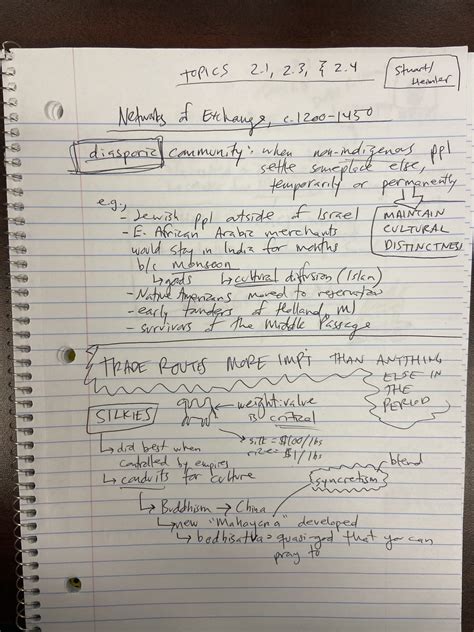 TOPICS 2.1, 2.3, & 2.4
Stuart/
Heimler
Networks of Exchange, c. 1200-1450
diasporic community: when non-indigenous ppl
settle someplace else,
temporarily or permanently
e.g.,
- Jewish ppl outside of Israel
- E. African Arabic merchants
would stay in India for months
b/c monsoon
↳ goods ↳ cultural diffusion (Islam)
MAINTAIN
CULTURAL
DISTINCTNESS
- Native Americans moved to reservation
- early founders of Holland, MI
- survivors of the Middle Passage
TRADE ROUTES MORE IMPT THAN ANYTHING
ELSE IN
THE
PERIOD
SILKIES
← weight:value
is critical
silk = $100/lbs
rice = $1/lbs
↳ did best when
controlled by empires
↳ conduits for culture
blend
syncretism
↳ Buddhism → China
↳ new "Mahayana" developed
↳ bodhisatva = quasi-god that you can
pray to